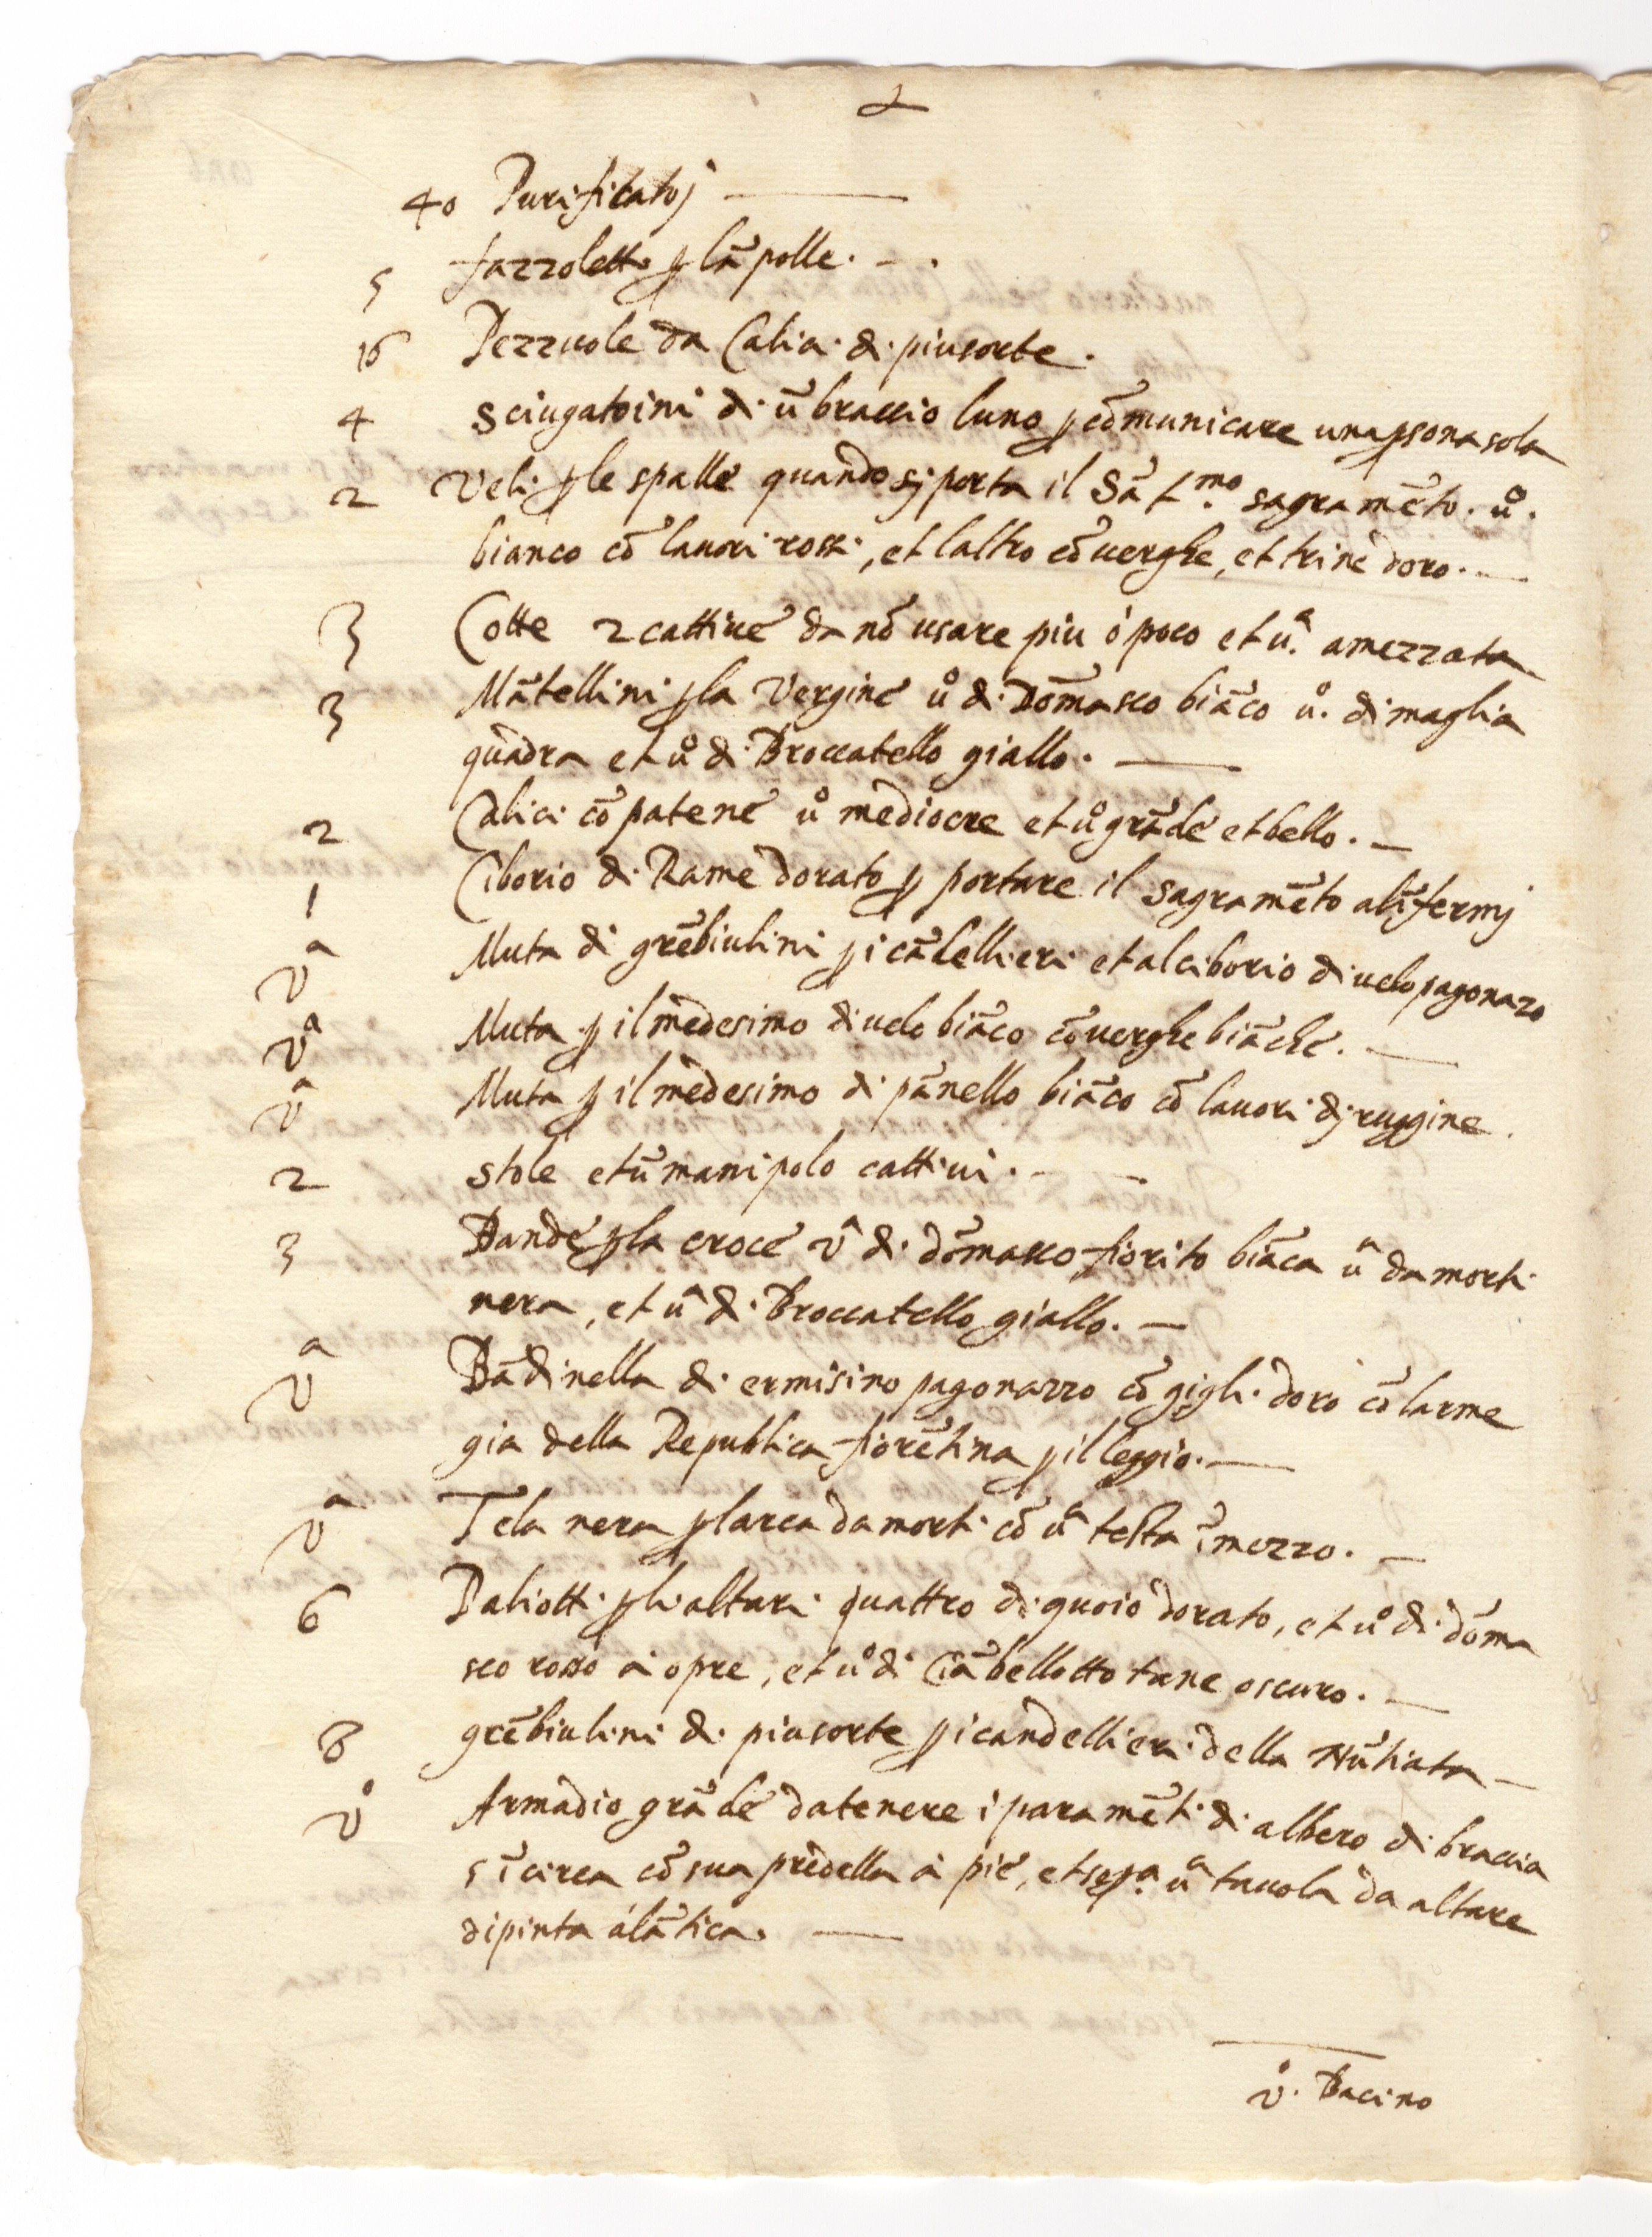 2
40 Purificatoj
5 fazzoletti p lāpolle.
16 Pezzuole da Calici di piu sorte.
4 Sciugatoini di ū braccio luno p cōmunicare una psona sola
2 Veli p le spalle quando si porta il Sāt.mo sagramēto. uº.
bianco cō lauori rossi, et laltro cō uerghe, et trine doro.
3 Cotte 2 cattiue da nō usare piu ó poco et uª. amezzata
3 Mātellini p la Vergine uº di Dōmasco biāco uº. di maglia
quadra et uº di Broccatello giallo.
2 Calici cō patene uº mediocre et uº grāde et bello.
1 Ciborio di Rame dorato p portare il sagramēto alīfermj
Vª Muta di grēbiulini p i cādellieri et al ciborio di uelo pagonazo
Vª Muta p il medesimo di uelo biāco cō uerghe biāche.
Vª Muta p il medesimo di pānello biāco cō lauori di ruggine.
2 Stole et ū manipolo cattiui.
3 Bande p la croce vª di dōmasco fiorito biāca uª da morti
nera, et uª di Broccatello giallo.
Vª Bādinella di ermisino pagonazzo cō gigli doro cō larme
gia della Republica fiorētina p il leggio.
Vª Tela nera p larca da morti cō uª testa ī mezzo.
6 Paliotti p li altari quattro di quoio dorato, et uº di dōma
sco rosso à opre, et uº di Ciābellotto tane oscuro.
8 grēbiulini di piu sorte p i candellieri della Nūtiata
Vº Armadio grāde da tenere i paramēti di albero di braccia
5 ī circa cō sua predella à pie, et sopª. uª tauola da altare
dipinta álātica.
vº. Bacino